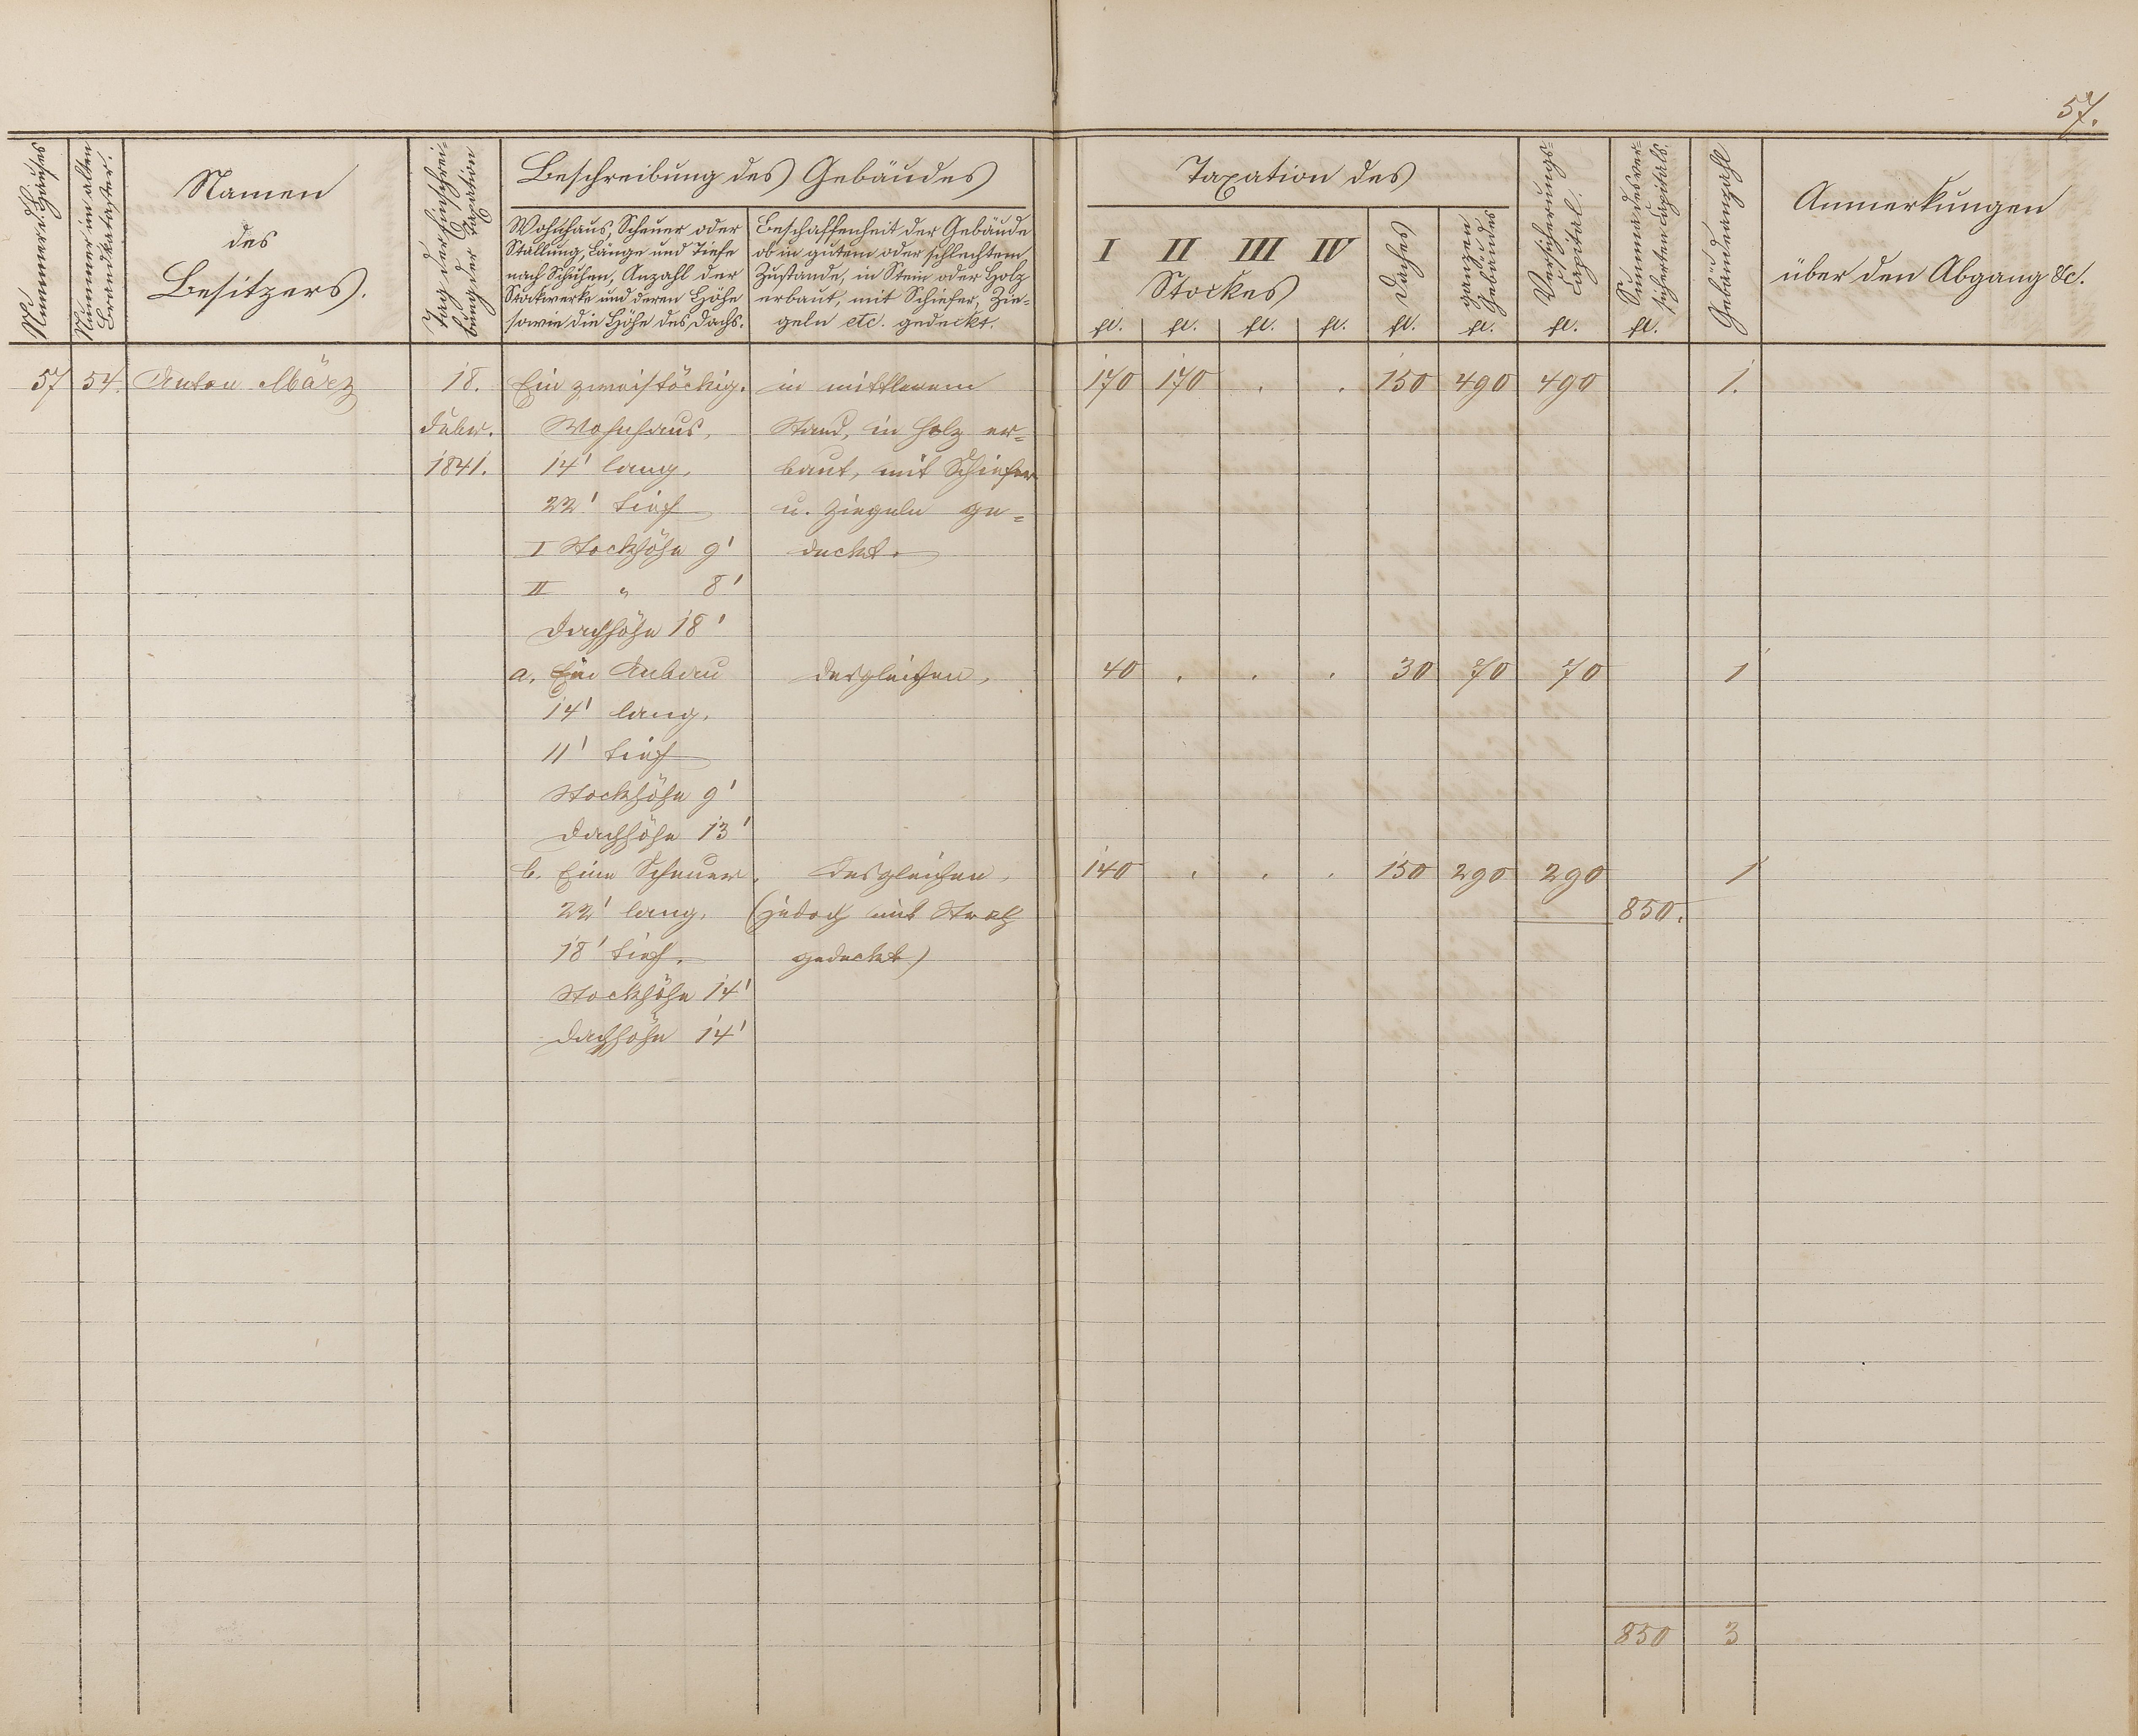 57.
Nummer d. Hauses
Nummer im alten Brandkataster.
Namen
des
Besitzers.
Tag der Einschrei-
bung der Taxation
Beschreibung des Gebäudes
Wohnhaus, Scheuer oder
Stallung, Länge und Tiefe
nach Schuhen, Anzahl der
Stockwerke und deren Höhe
sowie die Höhe des Dachs.
Beschaffenheit der Gebäude
ob in gutem oder schlechtem
Zustande, in Stein oder Holz
erbaut, mit Schiefer, Zie-
geln etc. gedeckt.
Taxation des
I II III IV
Stockes
Daches
ganzen
Gebäudes
Versicherungs-
Capital.
Summa des ver-
sicherten Capitals.
Gebäudeanzahl
Anmerkungen
über den Abgang &c.
fl. fl. fl. fl. fl. fl. fl. fl.
57 54. Anton März 18. Ein zweistöckig. in mittlerem 170 170 . . 150 490 490 1.
Dezbr. Wohnhaus, Stand, in Holz er=
1841. 14' lang, baut, mit Schiefer
22' tief u. Ziegeln ge=
I Stockhöhe 9' deckt.
II " 8'
Dachhöhe 18'
a. Ein Anbau desgleichen, 40 . . . 30 70 70 1
14' lang,
11' tief
Stockhöhe 9'
Dachhöhe 13'
b. Eine Scheuer, desgleichen, 140 . . . 150 290 290 1
22' lang, (jedoch mit Stroh 850.
18' tief. gedeckt)
Stockhöhe 14'
Dachhöhe 14'
850 3